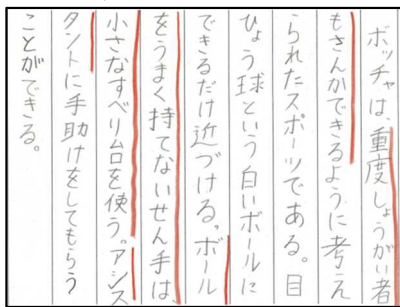 ボッチャは、重度しょうがい者
もさんかできるように考え
られたスポーツである。目
ひょう球という白いボールに
できるだけ近づける。ボール
をうまく持てないせん手は
小さなすべり台を使う。アシス
タントに手助けをしてもらう
ことができる。